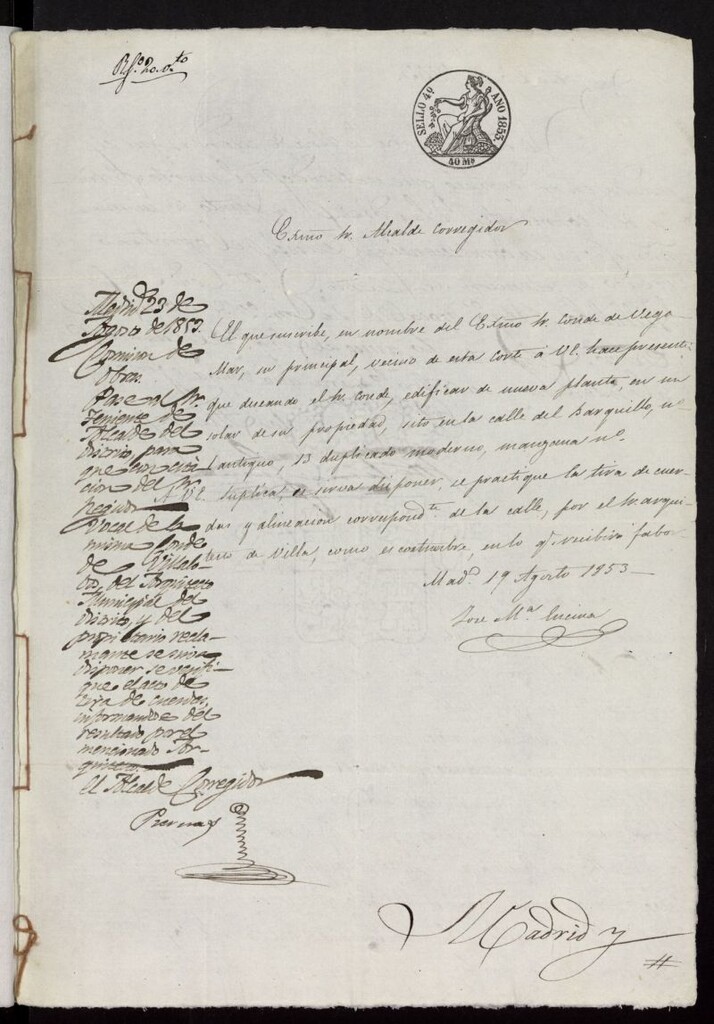 SELLO 4º
AÑO 1853.
40 Ms
Exmo Sr. Alcalde Corregidor
Madrid 23 de
Agosto de 1853.
Comision de
Obras.
Pase al Sr.
Teniente de
Alcalde del
distrito para
que con cita
cion del Sr.
Regidor
Vocal de la
misma Conde
de Villalo
bos, del Arquitecto
Municipal del
distrito, y del
propietario recla-
mante se sirva
disponer se verifi-
que el acto de
tira de cuerdas,
informandose del
resultado por el
mencionado Ar-
quitecto.
El Alcalde Corregidor
El que suscribe, en nombre del Exmo Sr. Conde de Vega
Mar, su principal, vecino de esta corte á VE. hace presente:
que deseando el Sr. Conde, edificar de nueva planta, en un
solar de su propiedad, sito en la calle del Barquillo, nº
antiguo, 13 duplicado moderno, manzana nº.
A VE. suplica, se sirva disponer, se practique la tira de cuer-
das y alineacion correspondte. de la calle, por el Sr arqui-
tecto de Villa, como es costumbre, en lo q. recibirá fabor
Madd. 19 Agosto 1853
Jose Ma. Encina
Madrid y